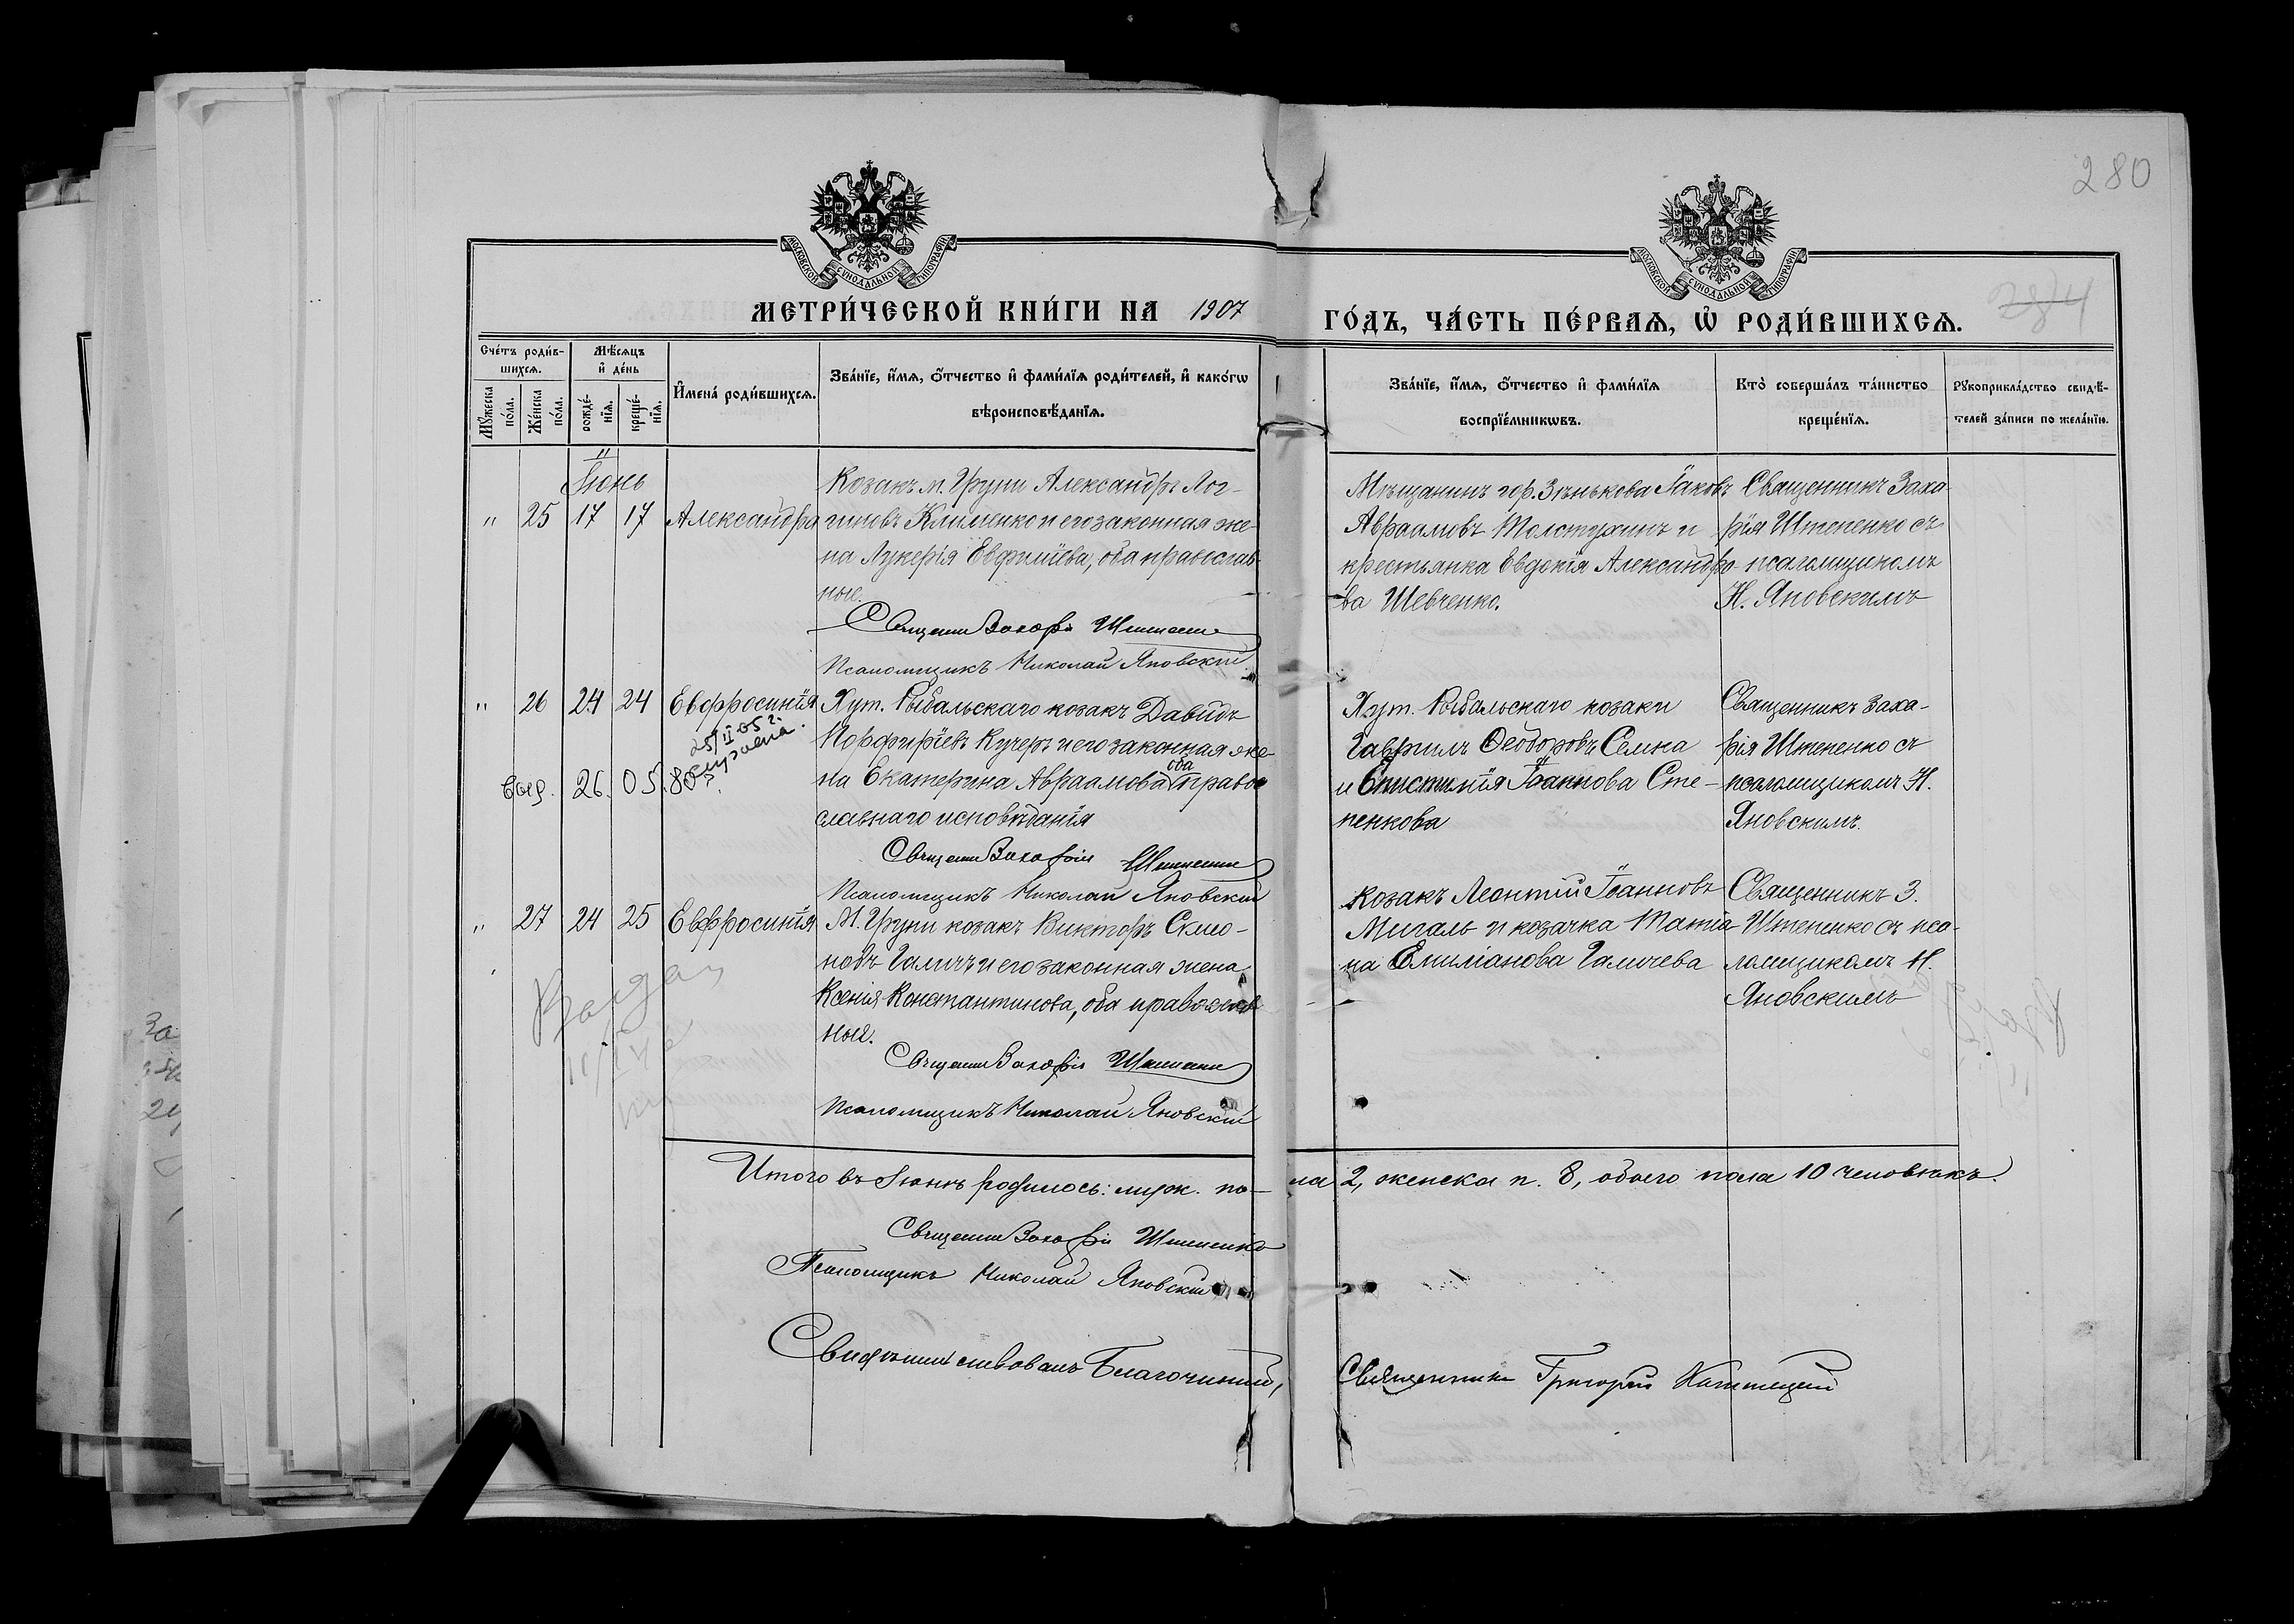 280
МОСКОВСКОЙ СѴНОДАЛЬНОЙ ТИПОГРАФІИ
МОСКОВСКОЙ СѴНОДАЛЬНОЙ ТИПОГРАФІИ
МЕТРИ́ЧЕСКОЙ КНИ́ГИ НА 1907
ГО́ДЪ, ЧА́СТЬ ПЕ́РВАѦ, Ѡ҆ РОДИ́ВШИХСѦ.
Сче́тъ роди́в-
шихсѧ.
Мꙋ́жеска по́ла.
Же́нска по́ла.
Мѣ́сѧцъ
и҆ де́нь
рожде́-
нїѧ.
креще́-
нїѧ.
И҆мена̀ роди́вшихсѧ.
Зва́нїе, и҆́мѧ, ѻ҆́тчество и҆ фами́лїѧ роди́телей, и҆ како́гѡ
вѣроисповѣ́данїѧ.
Зва́нїе, и҆́мѧ, ѻ҆́тчество и҆ фами́лїѧ
воспрїе́мникѡвъ.
Кто̀ соверша́лъ та́инство
креще́нїѧ.
Рꙋкоприкла́дство свидѣ́-
телей за́писи по жела́нїю.
Іюнь
" 25 17 17 Александра
Козакъ м. Груни Александръ Лог-
гиновъ Клименко и его законная же-
на Лукерія Евфиміева, оба православ-
ные.
Священ Захарій Штепенко
Псаломщикъ Николай Яновскій
Мѣщанинъ гор. Зѣнькова Іаковъ
Авраамовъ Толстухинъ и
крестьянка Евдокія Александро-
ва Шевченко.
Священникъ Заха-
рія Штепенко съ
псаломщикомъ
Н. Яновскимъ
" 26 24 24 Евфросинія
25/II 05 г.
26. 05. 80
Хут. Рыбальскаго козакъ Давидъ
Порфиріевъ Кучеръ и его законная же-
на Екатерина Авраамова оба право-
славнаго исповѣданія
Священ Захарій Штепенко
Псаломщикъ Николай Яновскій
Хут. Рыбальскаго козаки
Гавріилъ Ѳеодоровъ Семка
и Епистимія Іоаннова Сте-
пенкова
Священникъ Заха-
рія Штепенко съ
псаломщикомъ Н.
Яновскимъ.
" 27 24 25 Евфросинія
М. Груни козакъ Викторъ Симо-
новъ Галичъ и его законная жена
Ксенія Константинова, оба православ
ные.
Священ Захарій Штепенко
Псаломщикъ Николай Яновскій
Козакъ Леонтій Іоанновъ
Мигаль и козачка Татіа-
на Емиліанова Галичева
Священникъ З.
Штепенко съ пса-
ломщикомъ Н.
Яновскимъ
Итого въ Іюнѣ родилось: муж. по-ла 2, женска п. 8, обоего пола 10 человѣкъ.
Священ Захарій Штепенко
Псаломщикъ Николай Яновскій
Свидѣтельствовалъ Благочинный, Священникъ Григорій